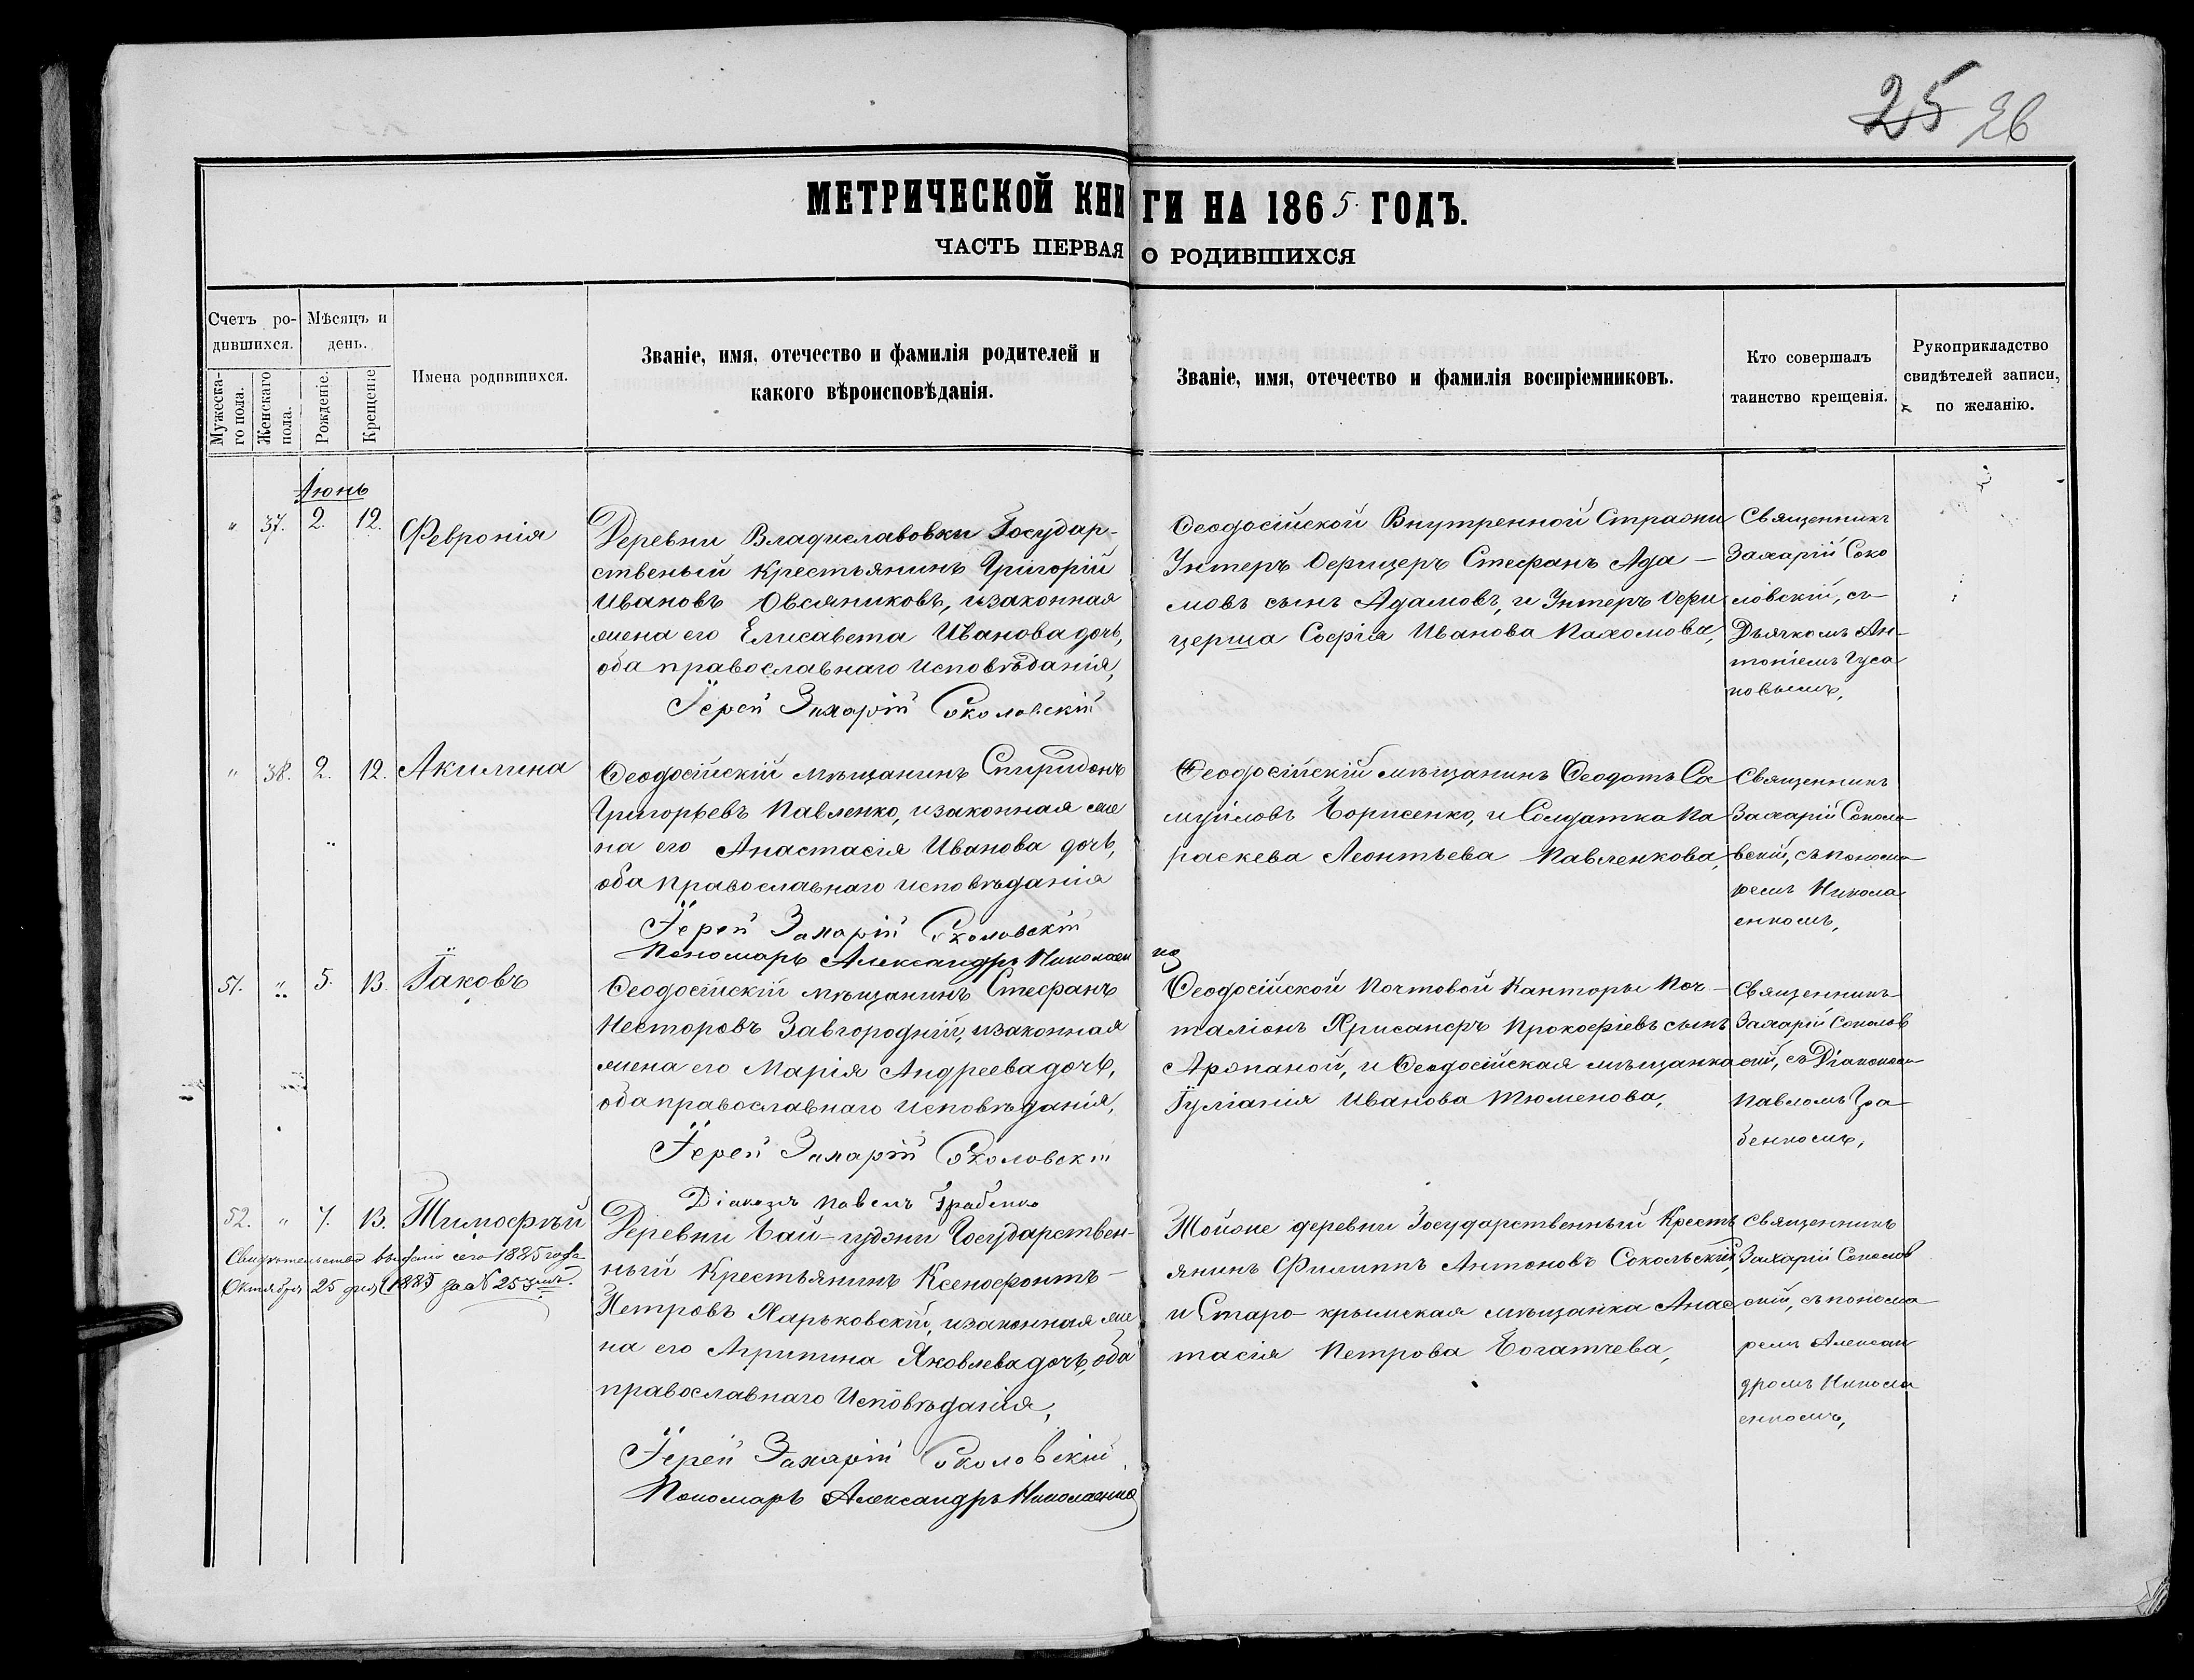 25 26
МЕТРИЧЕСКОЙ КНИГИ НА 1865 ГОДЪ.
ЧАСТЬ ПЕРВАЯ О РОДИВШИХСЯ
Счетъ ро-
дившихся.
Мужеска-
го пола.
Женскаго
пола.
Мѣсяцъ и
день.
Рожденіе.
Крещеніе
Имена родившихся.
Званіе, имя, отечество и фамилія родителей и
какого вѣроисповѣданія.
Званіе, имя, отечество и фамилія воспріемниковъ.
Кто совершалъ
таинство крещенія.
Рукоприкладство
свидѣтелей записи,
по желанію.
Іюнь
" 37. 2. 12. Февронія
Деревни Владиславовки Государ-
ственый крестьянинъ Григорій
Ивановъ Овсяниковъ, изаконная
жена его Елисавета Иванова дочь,
оба православнаго исповѣданія,
Іерей Захарій Соколовскій
Ѳеодосійской Внутренной Стражи
Унтеръ Офицеръ Стефанъ Ада-
мовъ сынъ Адамовъ, и Унтеръ Офи
церша Софія Иванова Пахомова,
Священникъ
Захарій Соко
ловскій, съ
Дьячкомъ Ан-
тоніемъ Гуса
ковымъ,
" 38. 2. 12. Акилина
Ѳеодосійскій мѣщанинъ Спиридонъ
Григорьевъ Павленко, изаконная же
на его Анастасія Иванова дочь,
оба православнаго исповѣданія
Іерей Захарій Соколовскій
Пономарь Александръ Николаен
ко
Ѳеодосійскій мѣщанинъ Ѳеодотъ Са
муйловъ Борисенко, и Солдатка Па
раскева Леонтьева Павленкова,
Священникъ
Захарій Соколо
вскій, съ поном
ремъ Никола
енкомъ,
51. " 5. 13. Іаковъ
Ѳеодосійскій мѣщанинъ Стефанъ
Несторовъ Завгородній, изаконная
жена его Марія Андреева дочь,
оба православнаго исповѣданія,
Іерей Захарій Соколовскій
Діаконъ Павелъ Грабенко
Ѳеодосійской Почтовой Канторы Поч-
таліонъ Хрисанфъ Прокофіевъ сынъ
и Ѳеодосійская мѣщанка
Іуліанія Иванова Тюменова,
Священникъ
Захарій Соколов
скій, съ Діакономъ
Павломъ Гра
бенкомъ,
52. " 7. 13. Тимофѣй
Свидѣтельство выдано сего 1885 года
Октября 25 дня (1885 за № 25
Деревни Бай-гудзи Государствен-
ный Крестьянинъ Ксенофонтъ
Петровъ Харьковскій, изаконная же
на его Агрипина Яковлева дочь, оба
православнаго Исповѣданія,
Іерей Захарій Соколовскій
Пономарь Александръ Николаенко
Тойже деревни Государственный Кресть
янинъ Филиппъ Антоновъ Сокольскій,
и Старо-крымская мѣщанка Анас
тасія Петрова Богатчева,
Священникъ
Захарій Соколов
скій, съ понома
ремъ Алексан
дромъ Никола
енкомъ,